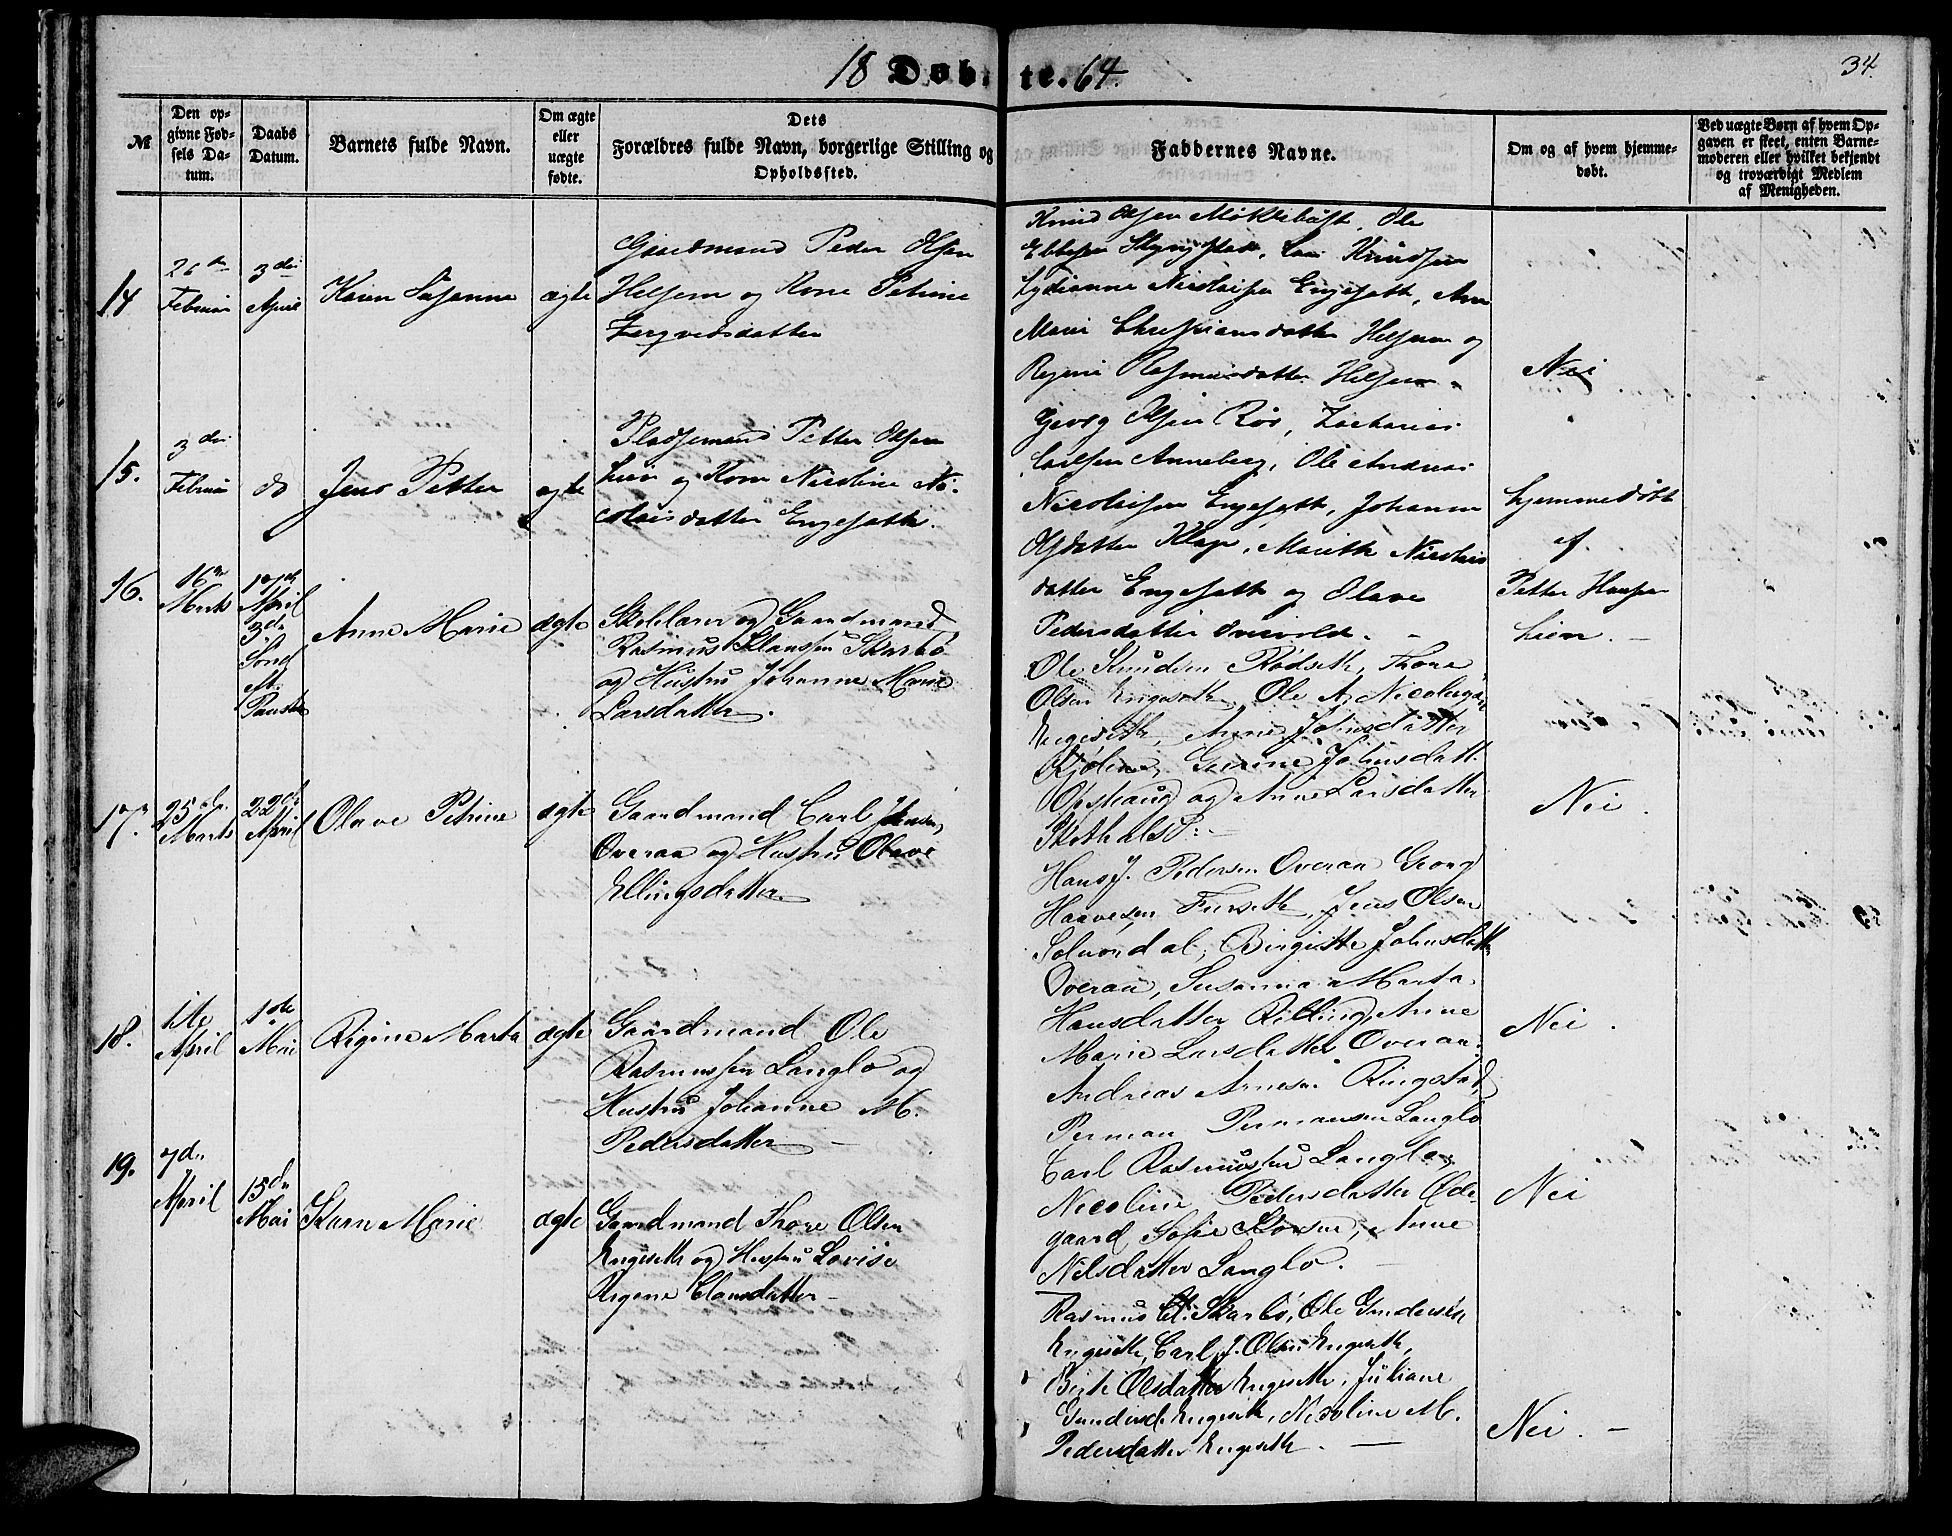 18 Døbte. 64.
34.
№
Den opgivne Fødsels Datum.
Daabs Datum.
Barnets fulde Navn.
Om ægte eller uægte fødte.
Dets Forældres fulde Navn, borgerlige Stilling og Opholdssted.
Faddernes Navne.
Om og af hvem hjemmedøbt.
Ved uægte Børn af hvem Opgaven er skeet, enten Barnemoderen eller hvilket bekjendt og troværdigt Medlem af Menigheden.
14
26de
Februar
3die
April
Karen Susanne
ægte
Gaardmand Peder Olsen
Helsem og Kone Petrine
Knud Olsen Ole
Knudsen
Nicolaisen Engesæth, Ane
Marie Christiansdatter Helsem og
Regine Rasmusdatter Helsem
Nei
15.
3die
Februar
do
Jens Petter
ægte
Pladsemand Petter Olsen
Lien og Kone Nicoline Ni-
colaisdatter Engesæth.
Georg Olsen Zacharias
Carlsen Anneberg, Ole Andreas
Nicolaisen Engesæth, Johanne
Olsdatter Marith Nicolais
datter Engesæth og Olave
Pedersdatter
hjemmedøbt
af
Petter Hansen
Lien. -
16.
16de
Marts
17de
April
3die
Sønd.
eft.
Paaske
Anne Marie
ægte
Skolelærer og Gaardmand
Rasmus Klaussen Skarbø
og Hustru Johanne Marie
Larsdatter.
Ole Knudsen Rødseth, Thore
Olsen Engeseth, Ole A. Nicolaisen
Engeseth, Anne Johnsdatter
Johnsdatt.
Opshaug og Anne Larsdatter
Nei
17.
25de
Marts
22de
April
Olave Petrine
ægte
Gaardmand Carl Johnsen
Overaa og Hustru Olave
Ellingsdatter.
Hans J. Pedersen Overaa, Georg
Haavesen Furseth, Jens Olsen
Solnordal, Birgitte Johnsdatt.
Overaa, Susanna Marta
Hansdatter Anne
Marie Larsdatter Overaa.
Nei.
18.
1ste
April
1ste
Mai
Rigine Marta
ægte
Gaardmand Ole
Rasmussen Langlo og
Hustru Johanne M.
Pedersdatter -
Andreas Arnesen Ringstad,
Perman Permansen Langlo
Carl Rasmussen Langlo,
Nicoline Pedersdatter Øde-
gaard, Sofie Anne
Nilsdatter Langlo. -
Nei
19.
7de
April
15de
Mai
Karn Marie
ægte
Gaardmand Thore Olsen
Engeseth og Hustru Lovise
Regine Clausdatter -
Rasmus Cl. Skarbø, Ole Gundersen
Engeseth, Carl J. Olsen Engeseth,
Berte Olsdatter Engeseth, Juliane
Gundersd. Engeseth, Nicoline M.
Pedersdatter Engeseth. -
Nei. -